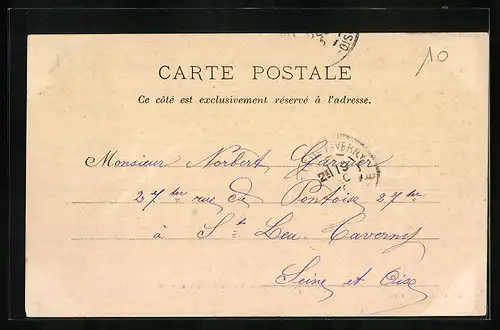 10
CARTE POSTALE
Ce côté est exclusivement réservé à l'adresse.
Monsieur Norbert Garnier
27 ter rue de Pontoise 27 ter
à St Leu-Taverny
Seine et Oise